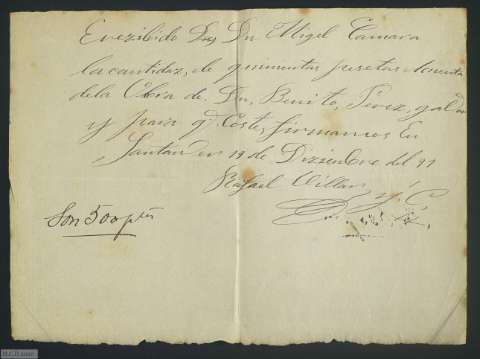 E rezibido Der Dn Migel Camara
la cantidaz, de quinientas pesetas a cuenta
de la Obra de Dn, Benito, Perez, galdos
y para q Coste, firmamos En
Santander 19 de Diziembre del 91
Rafael Villar y C
Son 500 pts